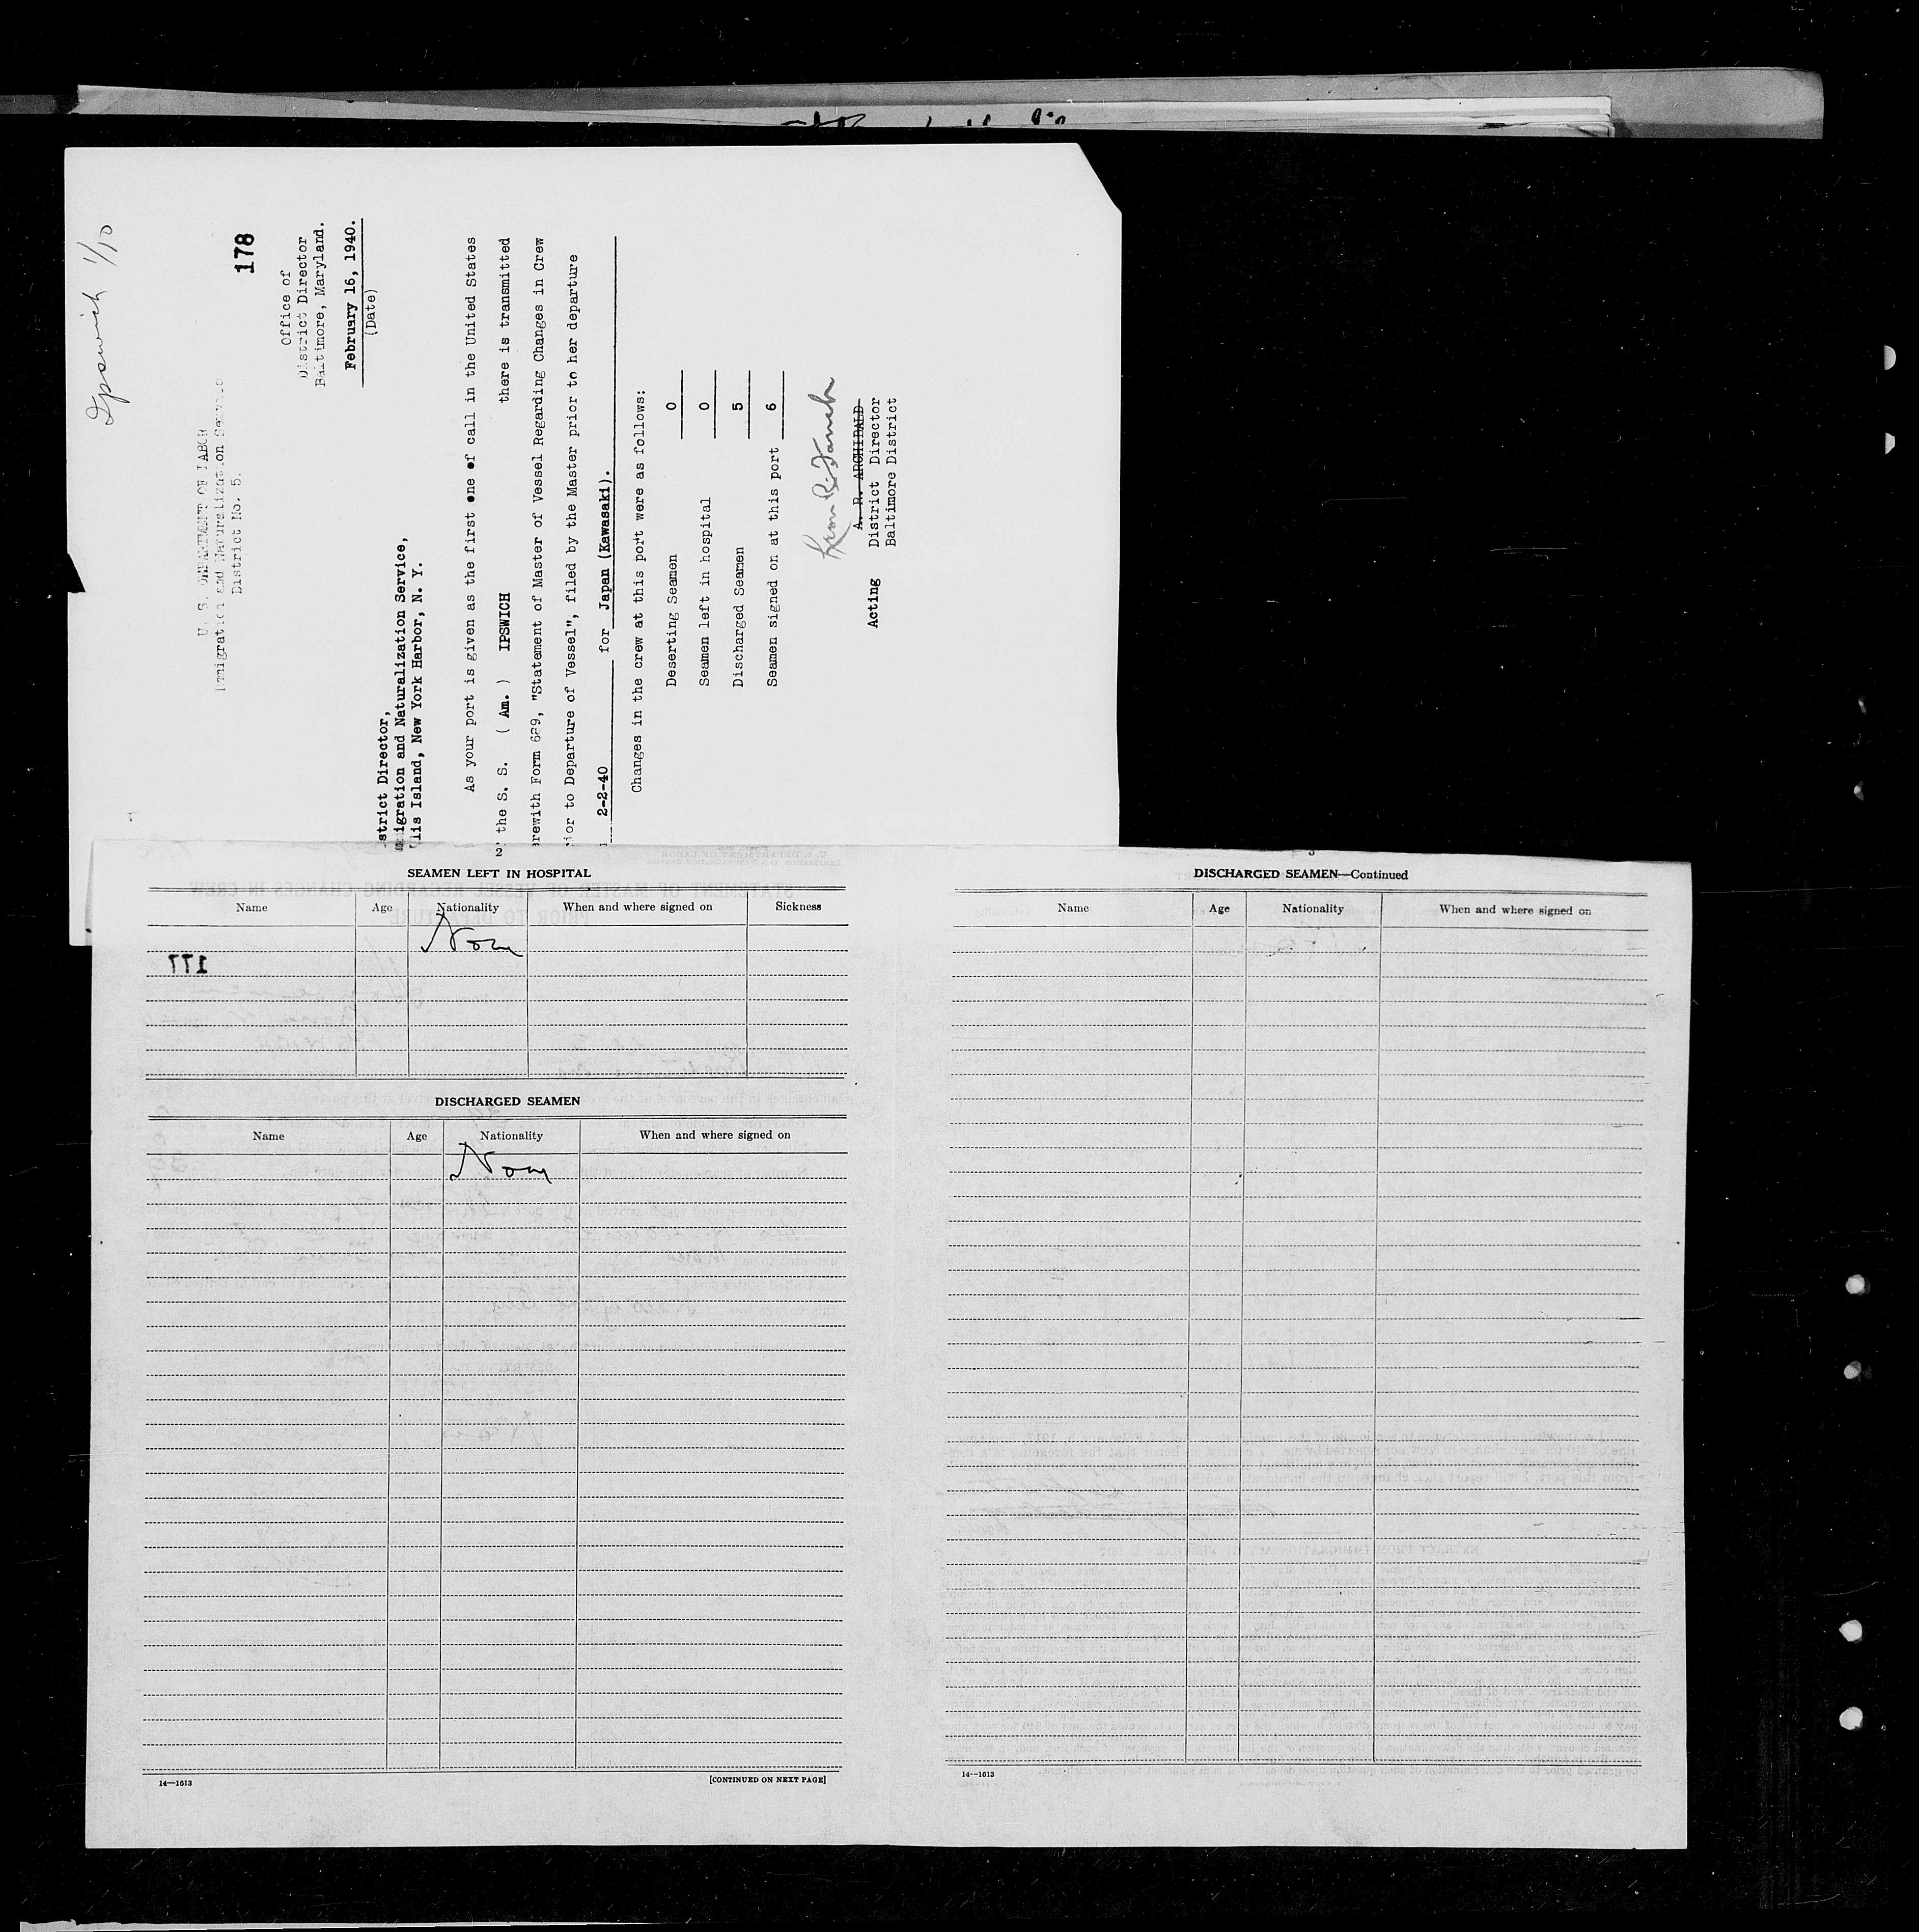 Ipswich 1/10
178
U. S. DEPARTMENT OF LABOR
Immigration and Naturalization Service
District No. 5.
Office of
District Director
Baltimore, Maryland.
February 16, 1940.
(Date)
strict Director,
migration and Naturalization Service,
llis Island, New York Harbor, N. Y.
As your port is given as the first one of call in the United States
the S. S. ( Am. ) IPSWICH there is transmitted
rewith Form 689, "Statement of Master of Vessel Regarding Changes in Crew
ior to Departure of Vessel", filed by the Master prior to her departure
2-2-40 for Japan (Kawasaki).
Changes in the crew at this port were as follows:
Deserting Seamen 0
Seamen left in hospital 0
Discharged Seamen 5
Seamen signed on at this port 6
A. R. ARCHIBALD
Acting District Director
Baltimore District
2
SEAMEN LEFT IN HOSPITAL
Name Age Nationality When and where signed on Sickness
None
177
DISCHARGED SEAMEN
Name Age Nationality When and where signed on
None
14—1613 [CONTINUED ON NEXT PAGE]
3
DISCHARGED SEAMEN—Continued
Name Age Nationality When and where signed on
14—1613